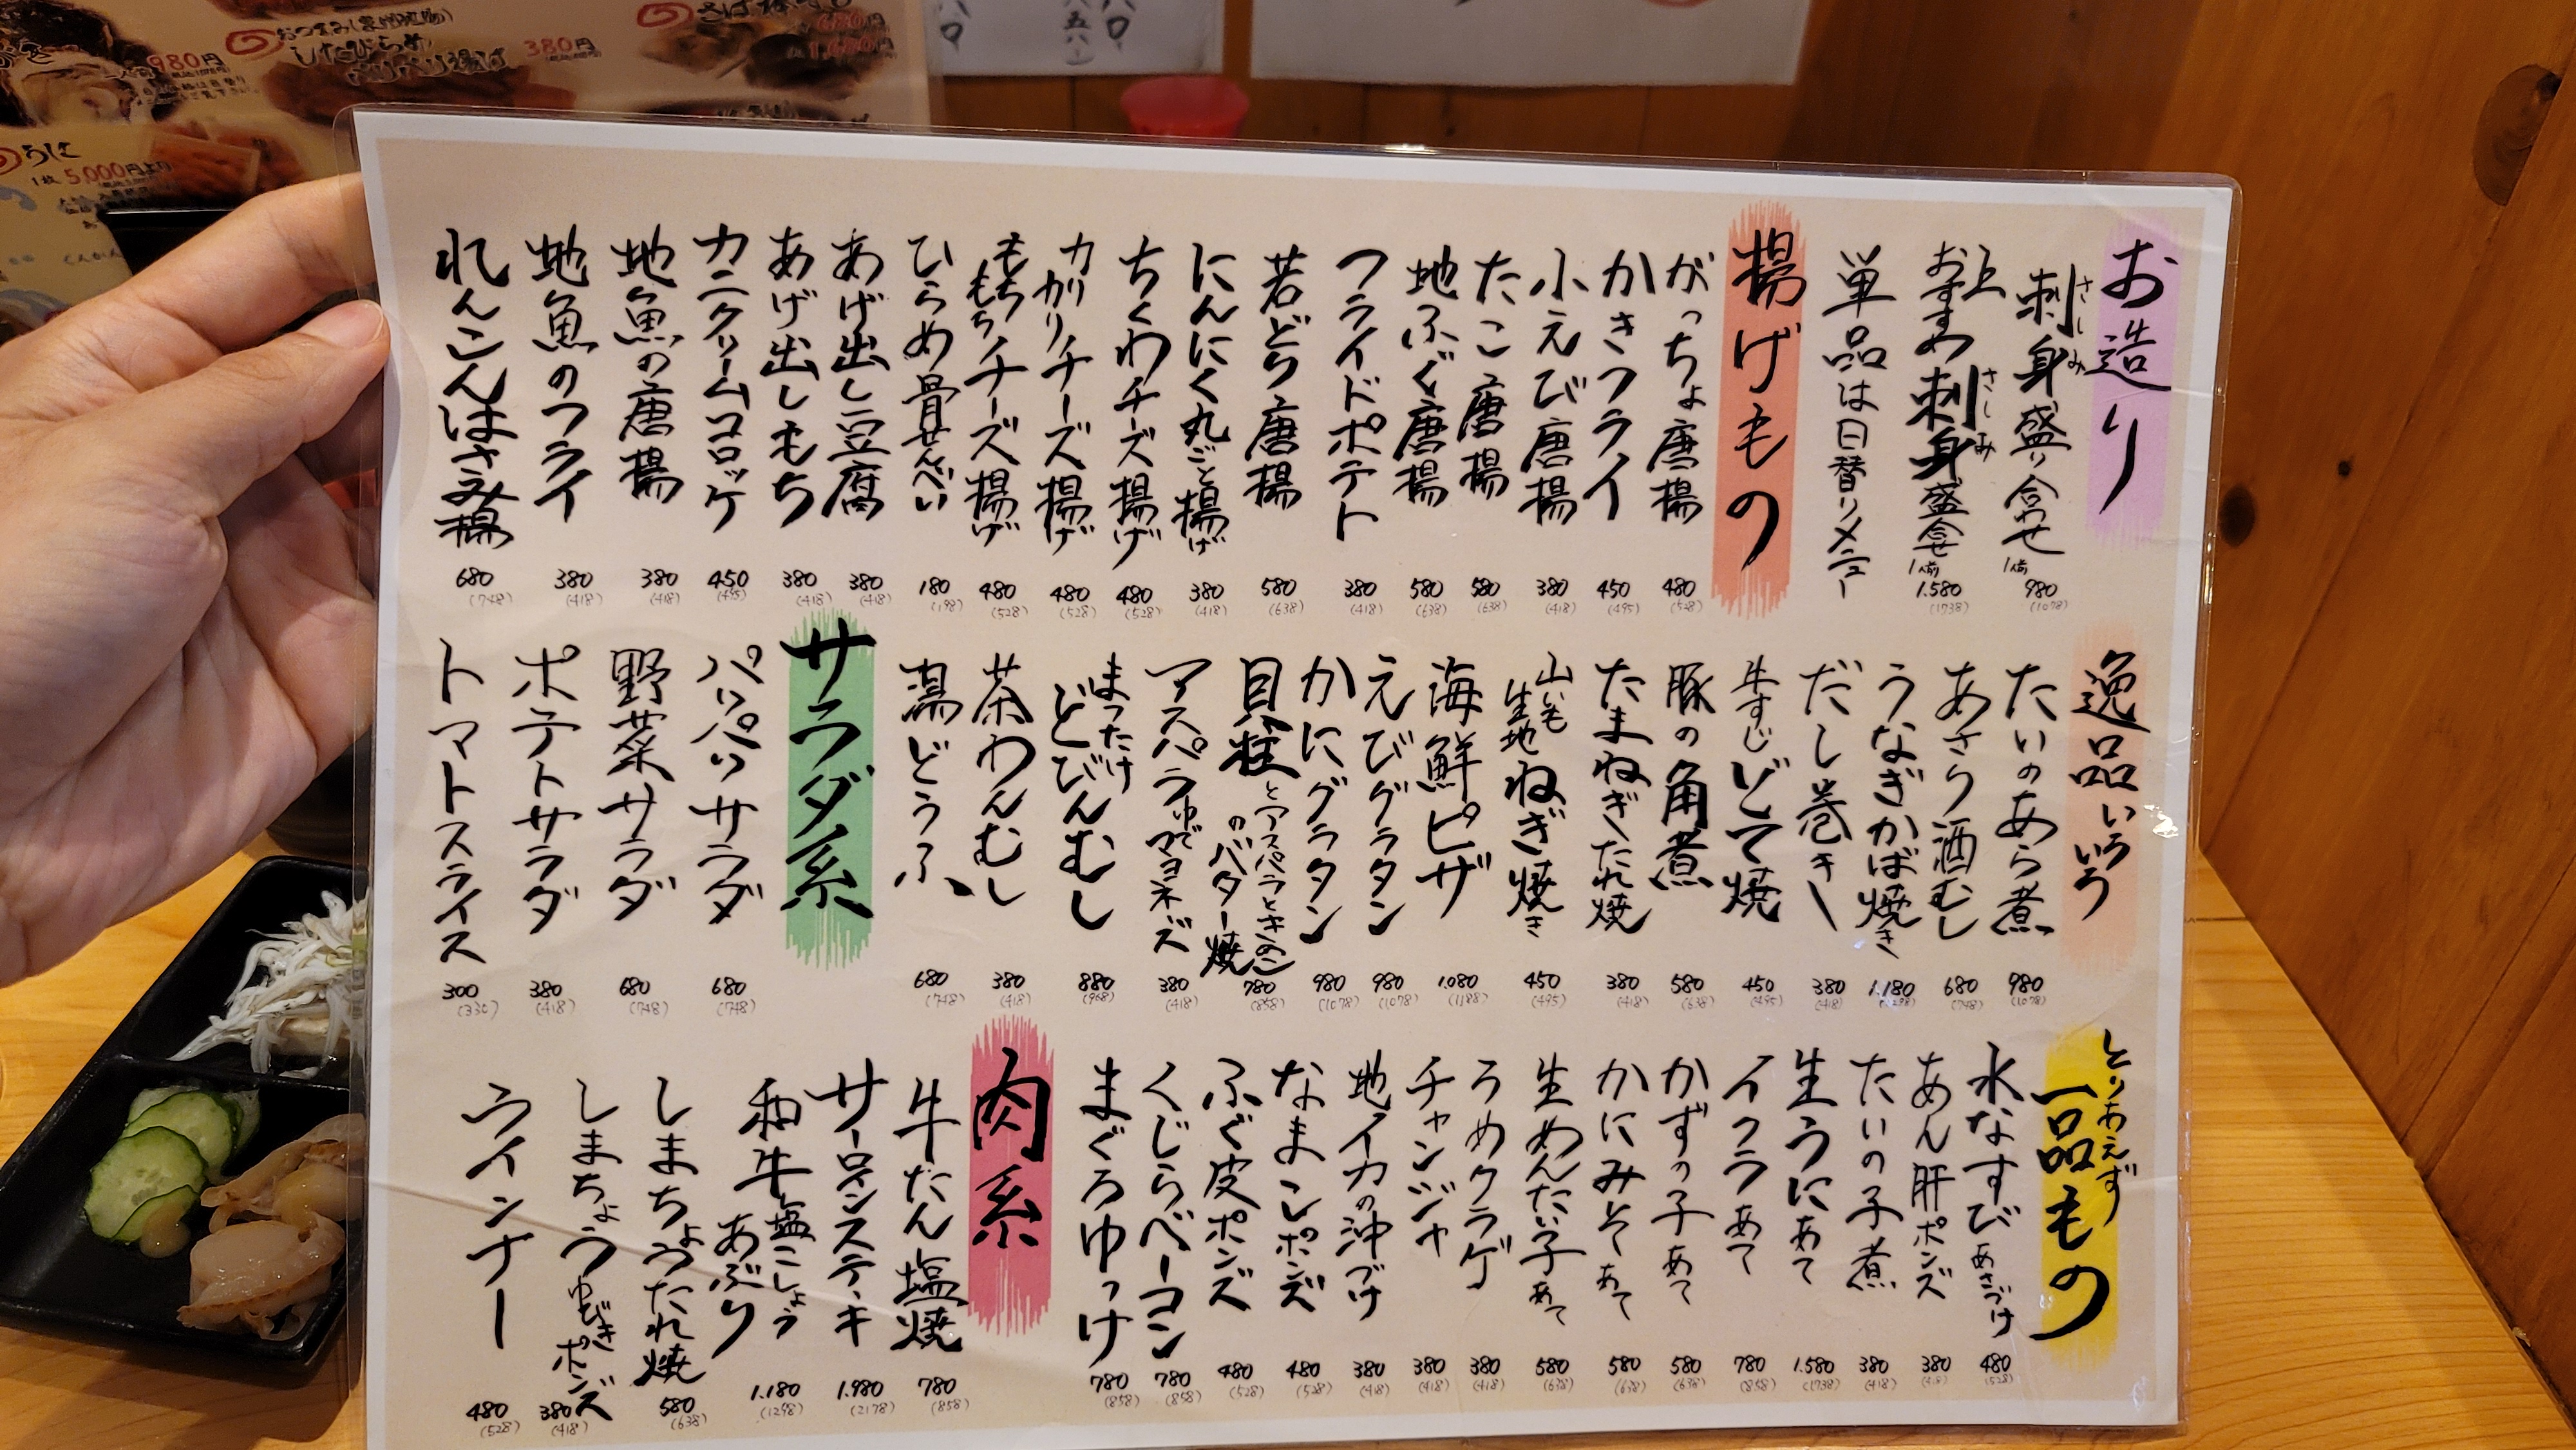 お造り
刺身盛り合わせ 1人前 980 (1078)
さしみ
上おすすめ刺身盛合せ 1人前 1.580 (1738)
さしみ
単品は日替りメニュー
揚げもの
がっちょ唐揚 480 (528)
かきフライ 450 (495)
小えび唐揚 380 (418)
たこ唐揚 580 (638)
地ふぐ唐揚 580 (638)
フライドポテト 380 (418)
若どり唐揚 580 (638)
にんにく丸ごと揚げ 380 (418)
ちくわチーズ揚げ 480 (528)
カリカリチーズ揚げ 480 (528)
もちもちチーズ揚げ 480 (528)
ひらめ骨せんべい 180 (198)
あげ出し豆腐 380 (418)
あげ出しもち 380 (418)
カニクリームコロッケ 450 (495)
地魚の唐揚 380 (418)
地魚のフライ 380 (418)
れんこんはさみ揚 680 (748)
逸品いろいろ
たいのあら煮 980 (1078)
あさり酒むし 680 (748)
うなぎかば焼き 1.180 (1298)
だし巻き 380 (418)
牛すじどて焼 450 (495)
豚の角煮 580 (638)
たまねぎたれ焼 380 (418)
山いも生地ねぎ焼き 450 (495)
海鮮ピザ 1.080 (1188)
えびグラタン 980 (1078)
かにグラタン 980 (1078)
貝柱とアスパラときのこのバター焼 780 (858)
アスパラゆでマヨネーズ 380 (418)
まったけどびんむし 880 (968)
茶わんむし 380 (418)
湯どうふ 680 (748)
サラダ系
パリパリサラダ 680 (748)
野菜サラダ 680 (748)
ポテトサラダ 380 (418)
トマトスライス 300 (330)
とりあえず一品もの
水なすびあさづけ 480 (528)
あん肝ポンズ 380 (418)
たいの子煮 380 (418)
生うにあて 1.580 (1738)
イクラあて 780 (858)
かずの子あて 580 (638)
かにみそあて 580 (638)
生めんたい子あて 580 (638)
うめクラゲ 380 (418)
チャンジャ 380 (418)
地イカの沖づけ 380 (418)
なまこポンズ 480 (528)
ふぐ皮ポンズ 480 (528)
くじらベーコン 780 (858)
まぐろゆっけ 780 (858)
肉系
牛たん塩焼 780 (858)
サーロインステーキ 1.980 (2178)
和牛塩こしょうあぶり 1.180 (1298)
しまちょうたれ焼 580 (638)
しまちょうゆびきポンズ 380 (418)
ウインナー 480 (528)
980円
おつまみ
したびらめ
パリパリ揚げ 380円
680円
1,680円
うに
1枚 5,000円より